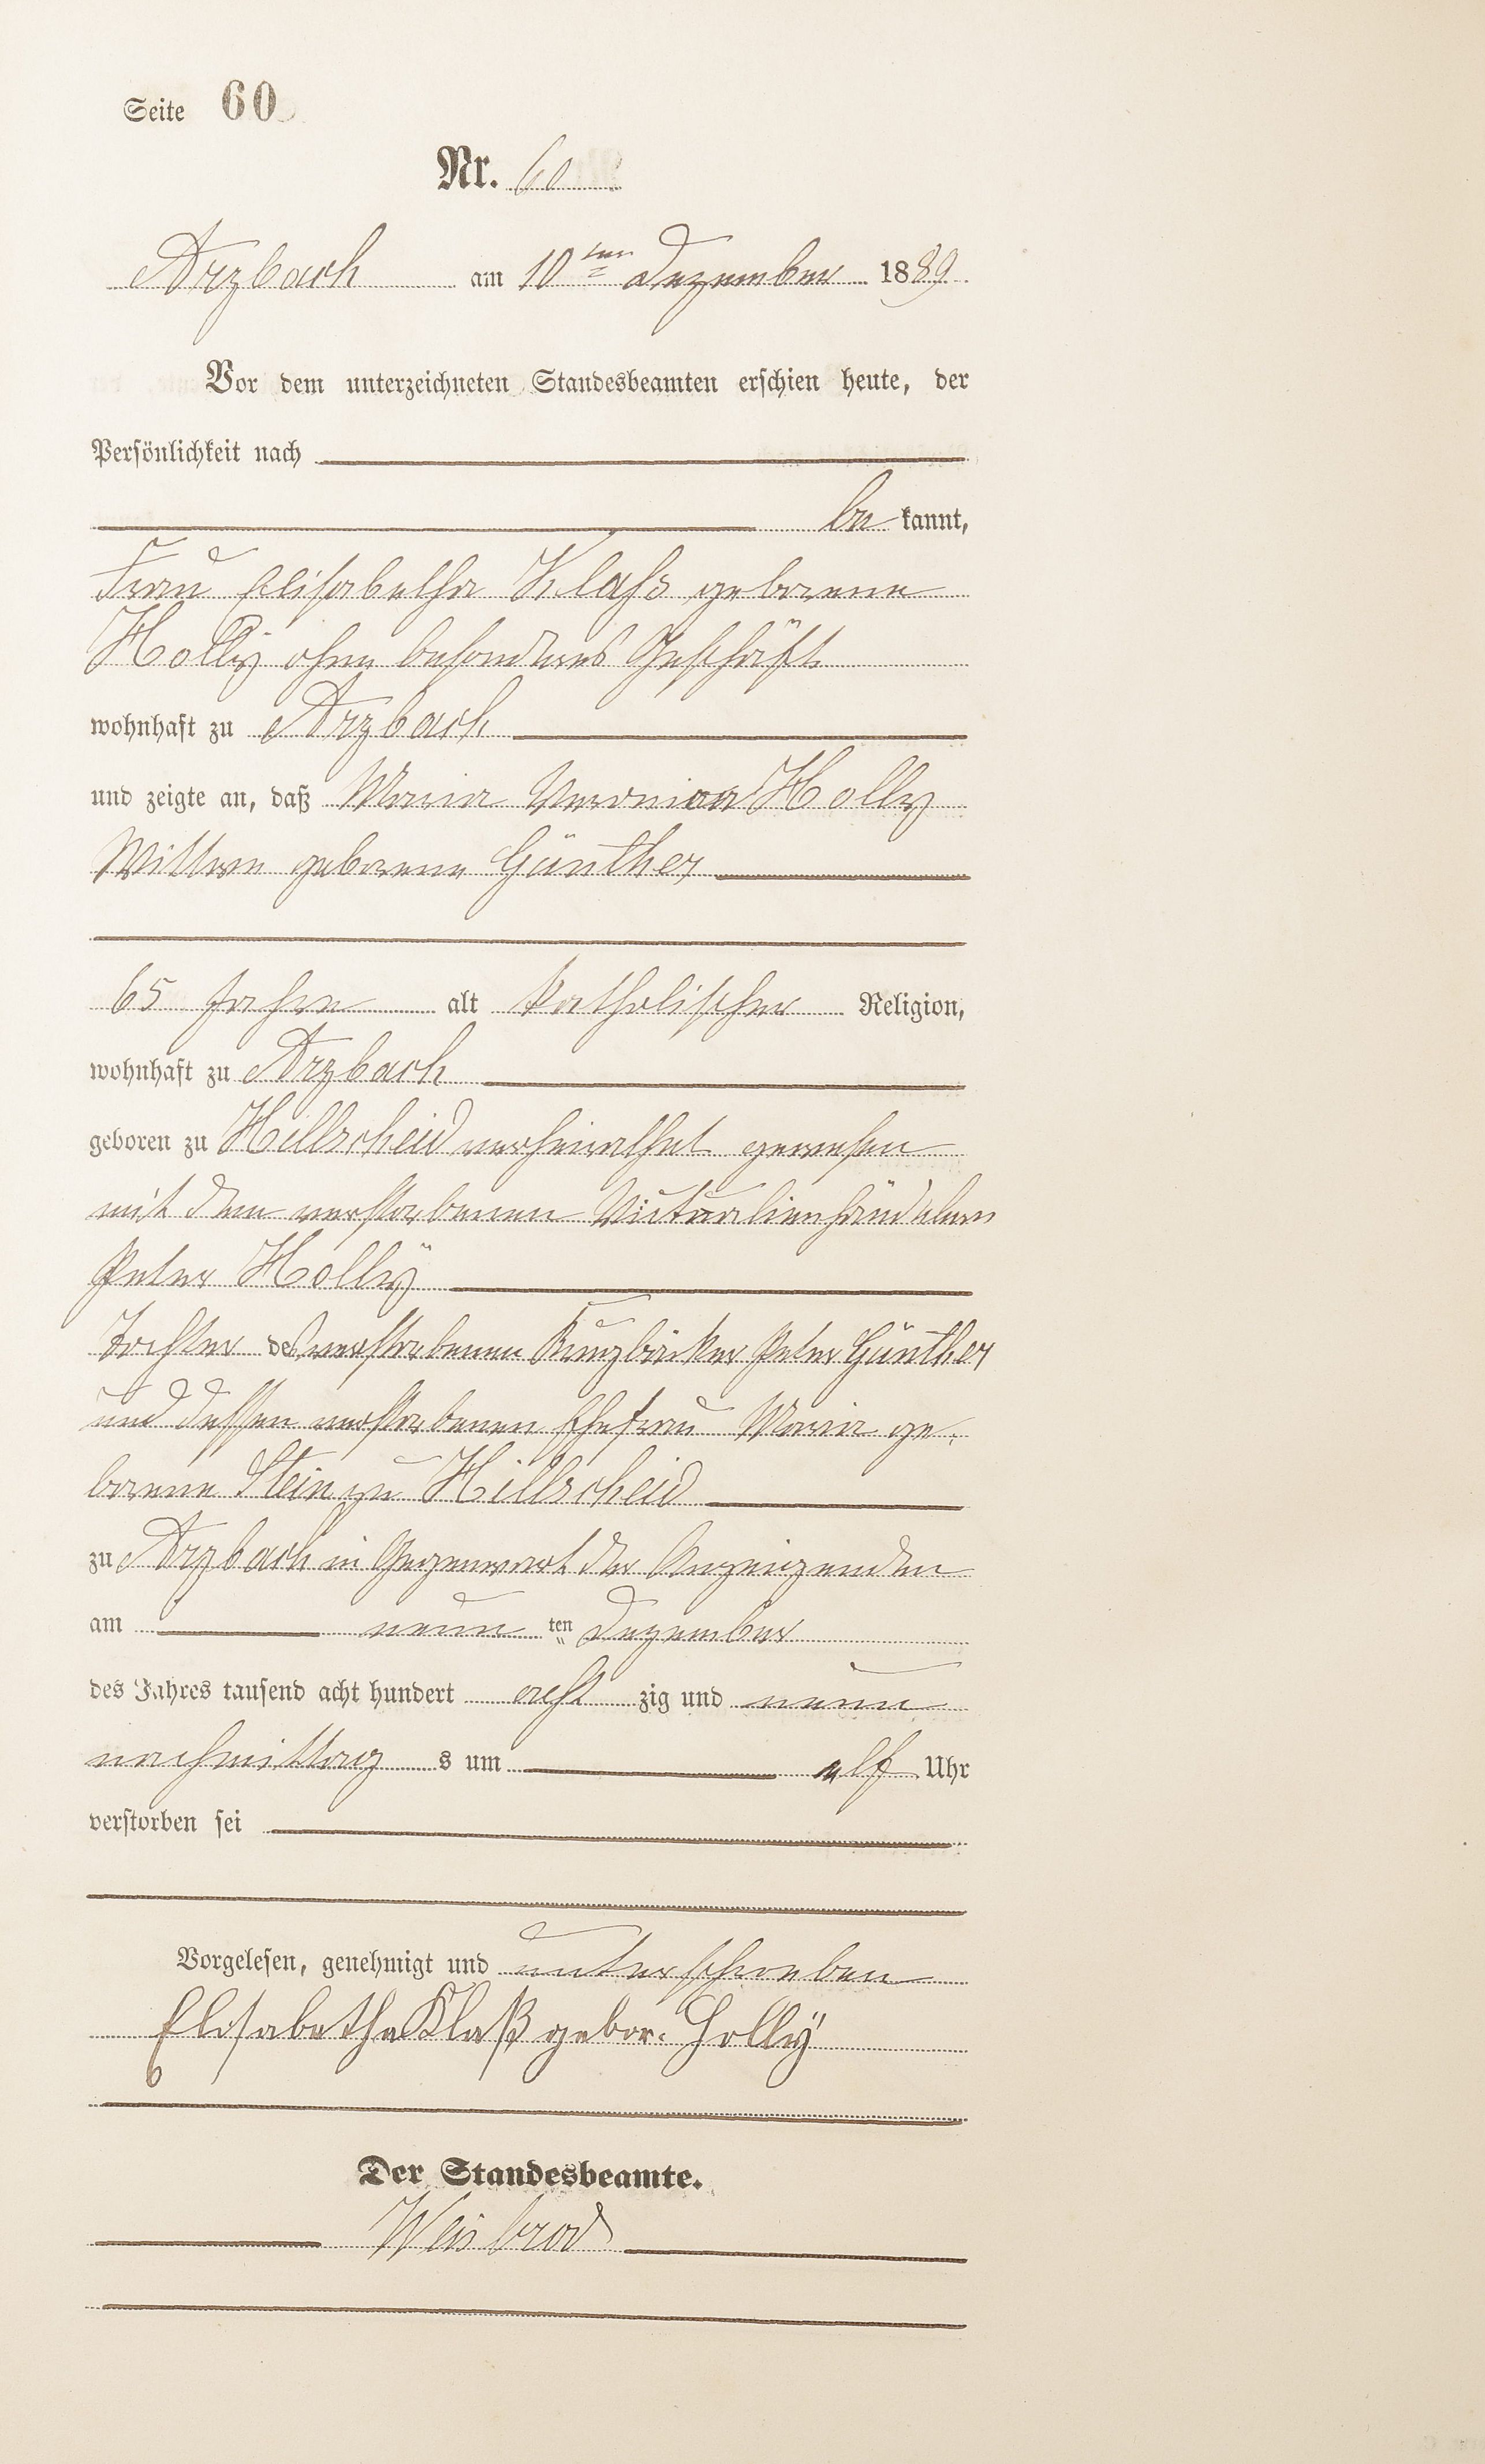 Seite 60
Nr. 60
Arzbach am 10ten Dezember 1889
Vor dem unterzeichneten Standesbeamten erschien heute, der
Persönlichkeit nach
be kannt,
Frau Elisabetha Klaß geborene
Holly ohne besonderes Geschäft
wohnhaft zu Arzbach
und zeigte an, daß Maria Veronica Holly
Wittwe geborene Günther
65 Jahre alt katholischer Religion,
wohnhaft zu Arzbach
geboren zu Hillscheid verheirathet gewesen
mit dem verstorbenen Victualienhändlern
Peter Hollÿ
Tochter des verstorbenen Peter Günther
und dessen verstorbenen Ehefrau Maria ge-
borene Stein zu Hillscheid
zu Arzbach in Gegenwart der Anzeigenden
am neun ten Dezember
des Jahres tausend acht hundert acht zig und neun
nachmittag s um elf Uhr
verstorben sei
Vorgelesen, genehmigt und unterschrieben
Elisabetha Klaß gebor. Hollÿ
Der Standesbeamte.
Weisbrod